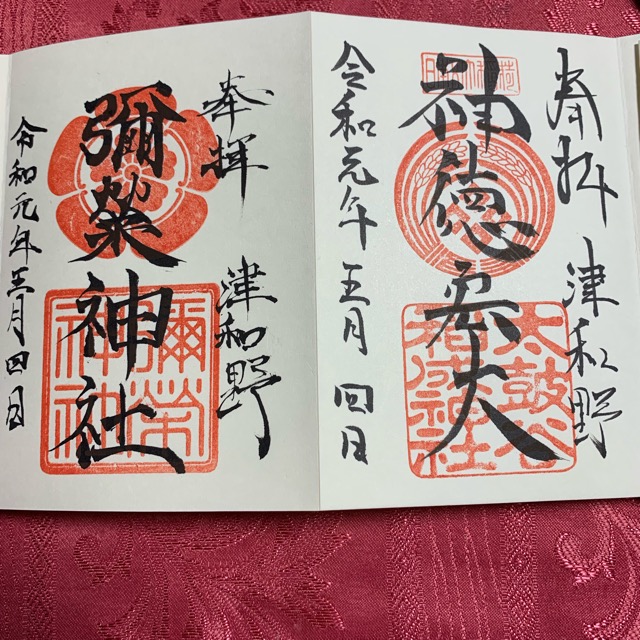 奉拝 津和野
神徳宏大
太鼓谷
令和元年 五月 四日
奉拝 津和野
彌榮神社
彌榮
神社
令和元年五月四日